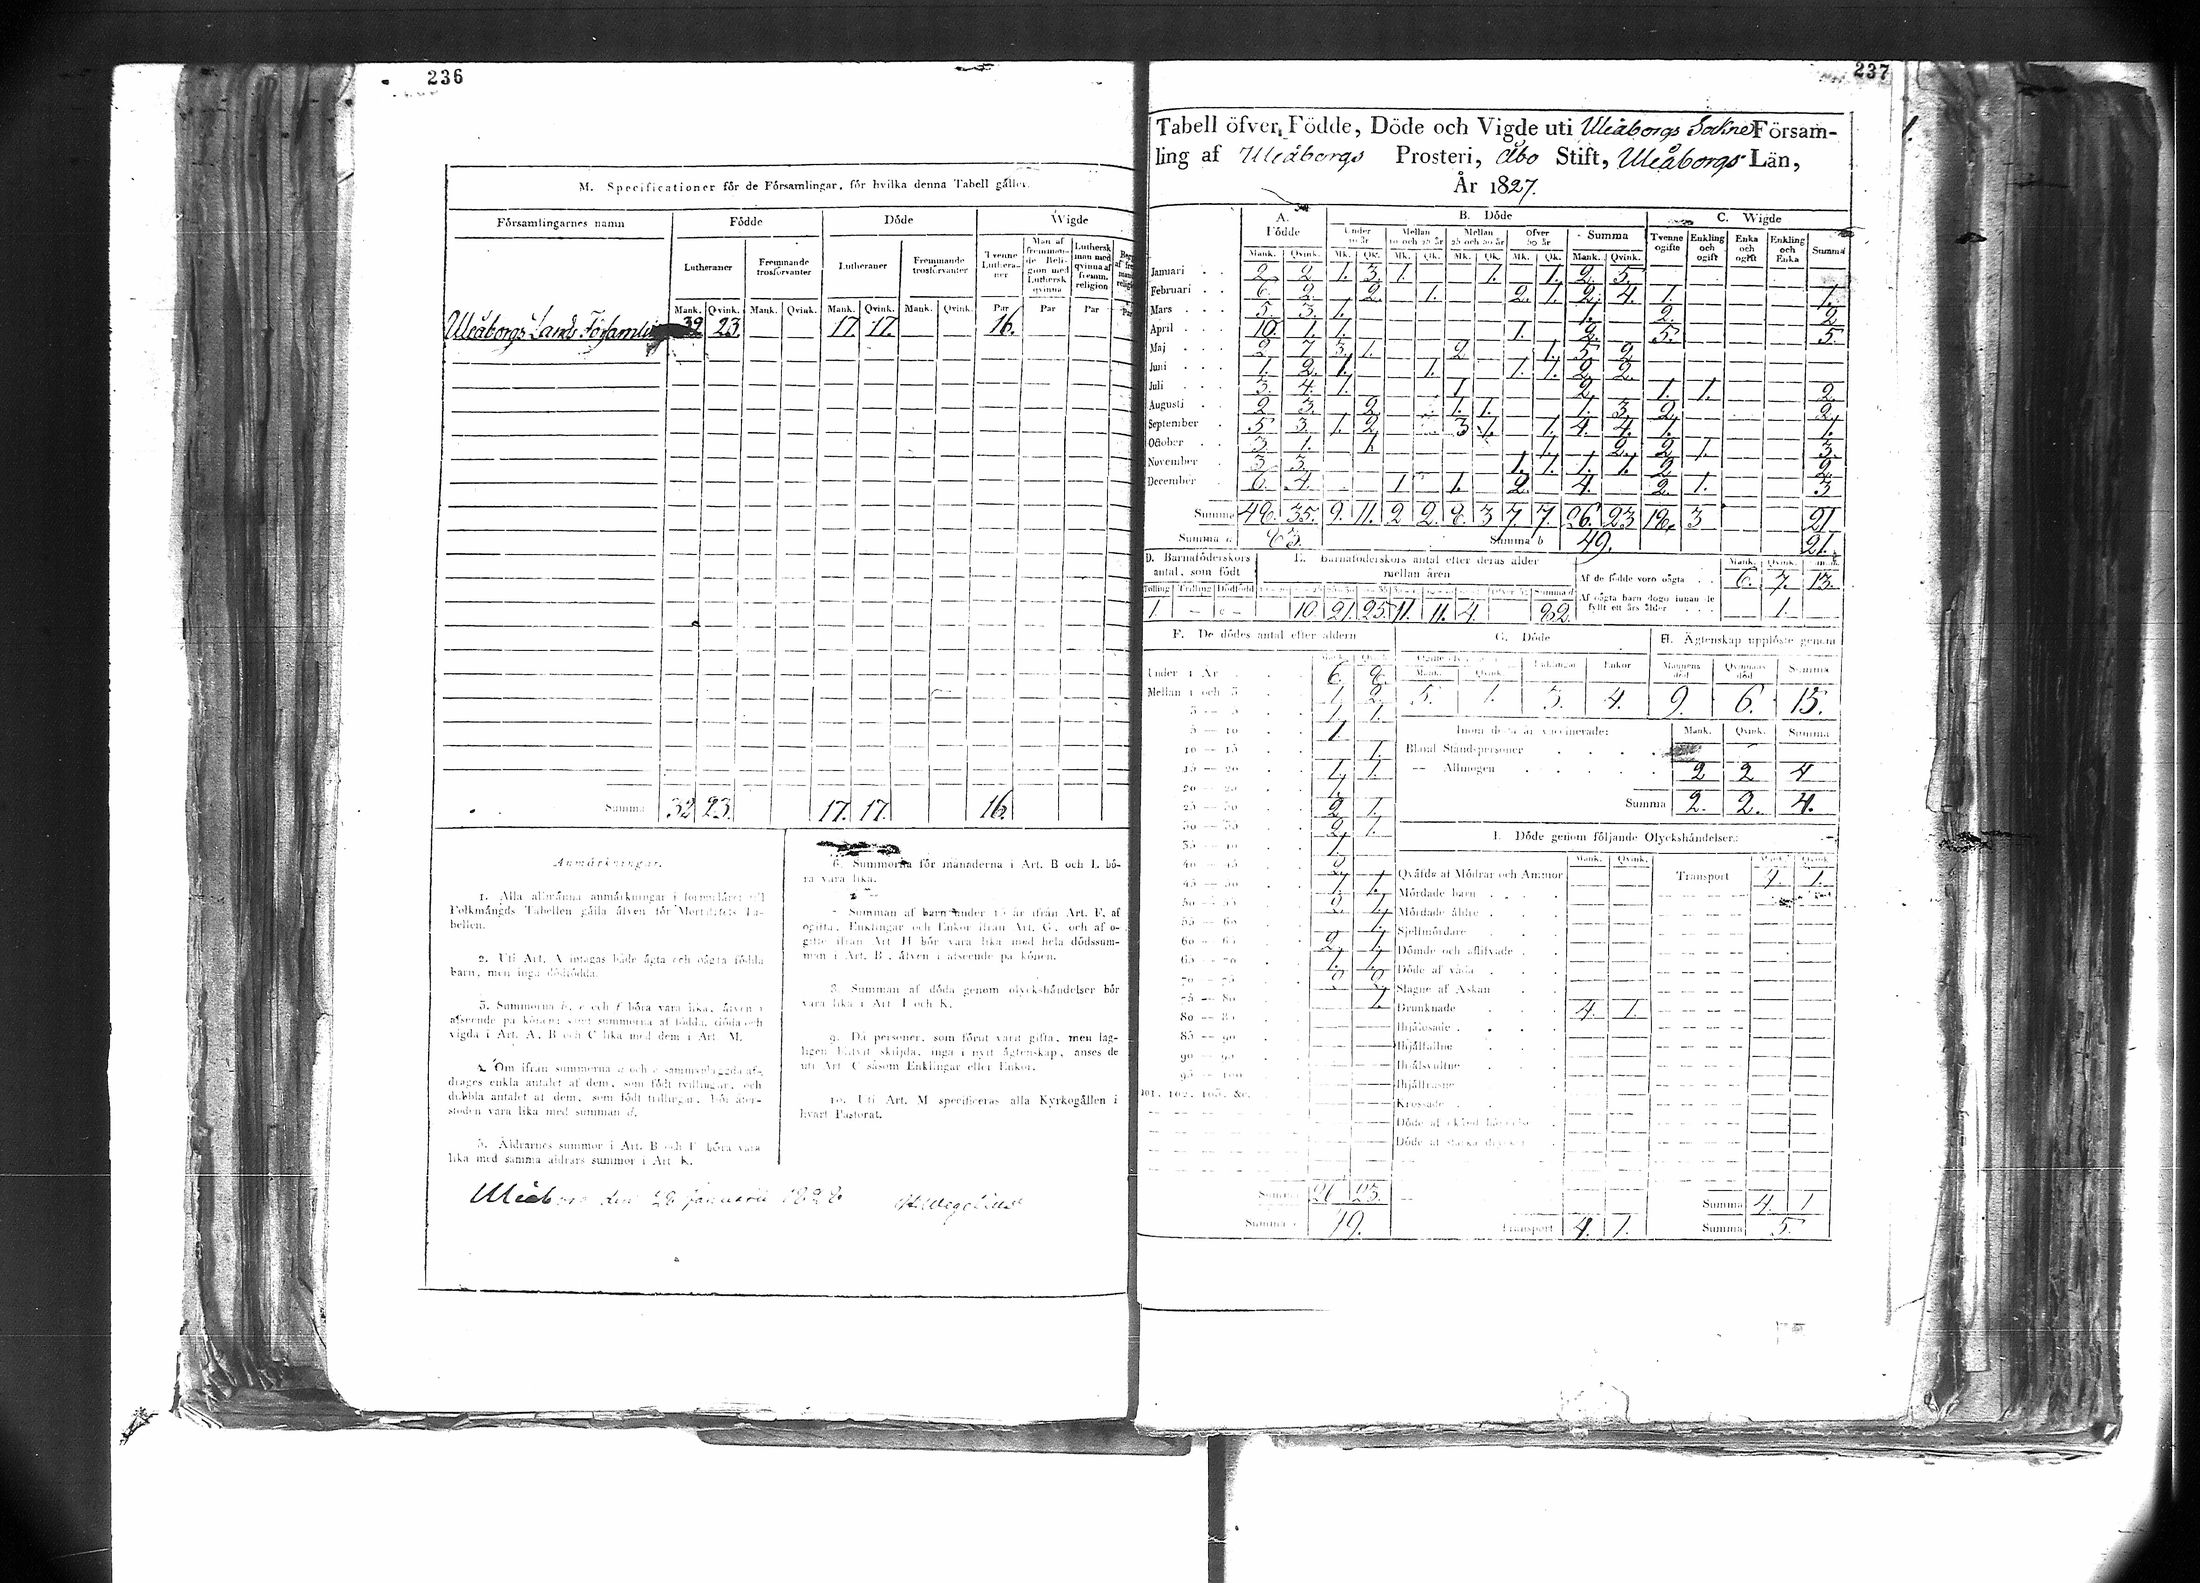 236
M. Specificationer för de Församlingar, för hvilka denna Tabell gäller.
Församlingarnes namn Födde Döde Wigde
Lutheraner Fremmande trosförvanter Lutheraner Fremmande trosförvanter Tvenne Lutheraner Man af fremmande Religion med Luthersk qvinna Luthersk man med qvinna af fremm. religion
Mank. Qvink. Mank. Qvink. Mank. Qvink. Mank. Qvink. Par Par Par
Uleåborgs Lands Församling 32 23. 17. 17. 16.
Summa 32 23. 17. 17. 16.
Anmärkningar.
1. Alla allmänna anmärkningar i formuläret till
Folkmängds Tabellen gälla äfven för Mortalitets Ta-
bellen.
2. Uti Art. A intagas både ägta och oägta födda
barn, men inga dödfödda.
3. Summorna b, e och f böra vara lika, äfven i
afseende på könen; samt summorna af födda, döda och
vigda i Art. A, B och C lika med dem i Art. M.
4. Om ifrån summorna a och c sammanlaggda af-
drages enkla antalet af dem, som födt tvillingar, och
dubbla antalet af dem, som födt trillingar, bör åter-
stoden vara lika med summan d.
5. Åldrarnes summor i Art. B och F böra vara
lika med samma åldrars summor i Art K.
6. Summorna för månaderna i Art. B och L bö-
ra vara lika.
7. Summan af barn under 15 år ifrån Art. F, af
ogifta, Enklingar och Enkor ifrån Art. G, och af
gifte ifrån Art H bör vara lika med hela dödssum-
man i Art. B, äfven i afseende på könen.
8. Summan af döda genom olyckshändelser bör
vara lika i Art. I och K.
9. Då personer, som förut varit gifta, men lag-
ligen blifvit skiljda, ingå i nytt ägtenskap, anses de
uti Art. C såsom Enklingar eller Enkor.
10. Uti Art. M specificeras alla Kyrkogällen i
hvart Pastorat.
Uleåborg den 29 Januarii 1828.
237
Tabell öfver Födde, Döde och Vigde uti Uleåborgs Sockne Församling
af Uleåborgs Prosteri, Åbo Stift, Uleåborgs Län,
År 1827.
A. Födde B. Döde C. Wigde
Under 10 år Mellan 10 och 25 år Mellan 25 och 50 år Öfver 50 år Summa Tvenne ogifte Enkling och ogift Enka och ogift Enkling och Enka Summa
Mank. Qvink. Mk. Qk. Mk. Qk. Mk. Qk. Mk. Qk. Mank. Qvink.
Januari 2. 2. 1. 3. 1. 1. 1. 2. 5.
Februari 6. 2. 2. 1. 2. 1. 2. 4. 1. 1.
Mars 5. 3. 1. 1. 2. 2
April 10. 1. 1. 1. 2. 5. 5.
Maj 2. 7. 3. 1. 2 1. 5. 2.
Juni 1. 2. 1. 1. 1. 1. 2. 2.
Juli 3. 4. 1. 1. 2. 1. 1. 2.
Augusti 2. 3. 2. 1. 1. 1. 3. 2. 2.
September 5. 3. 1. 2. 3 1. 1. 4. 4. 1. 1.
October 3. 1. 1. 1. 2. 2 1. 3.
November 3 3 1. 1. 1. 1. 2 2.
December 6. 4. 1 1. 2. 4. 2. 1. 3
Summa 48. 35. 9. 11. 2 2. 8. 3 7. 7. 26. 23 18. 3 21
Summa a 83. Summa b 49. 21.
D. Barnaföderskors antal, som födt
Tvilling Trilling Dödfödd
1. — c —
E. Barnaföderskors antal efter deras ålder mellan åren
10 21. 25. 11. 11. 4. 82.
Mank. Qvink.
Af de födde voro oägta 6. 7. 13.
Af oägta barn dogo innan de fyllt ett års ålder 1.
F. De dödes antal efter åldern
Under 1 År 6. 8.
Mellan 1 och 3 1. 2.
3 — 5 1. 1.
5 — 10 1
10 — 15 1.
15 — 20 1. 1.
20 — 25 1.
25 — 30 2 1.
30 — 35 2. 1.
35 — 40 1.
40 — 45
45 — 50
50 — 55
55 — 60
60 — 65
65 — 70
70 — 75
75 — 80
80 — 85
85 — 90
90 — 95
95 — 100
101. 102. 103. &c.
Summa 26 23.
49.
G. Döde
Enklingar Enkor
Mank. Qvink.
5. 1. 3. 4.
H. Ägtenskap upplöste genom
Mannens död Qvinnans död Summa
9. 6. 15.
Inom detta år vaccinerade: Mank. Qvink. Summa
Bland Ståndspersoner
— Allmogen 2 2 4
Summa 2. 2. 4.
I. Döde genom följande Olyckshändelser:
Mank. Qvink.
Qväfde af Mödrar och Ammor Transport 4. 1.
Mördade barn
Mördade äldre
Sjelfmördare
Dömde och aflifvade
Döde af våda
Slagne af Åskan
Drunknade 4. 1.
Ihjälosade
Ihjälfallne
Ihjälsvultne
Ihjälfrusne
Krossade
Transport 4. 1.
Summa 4. 1
Summa 5.